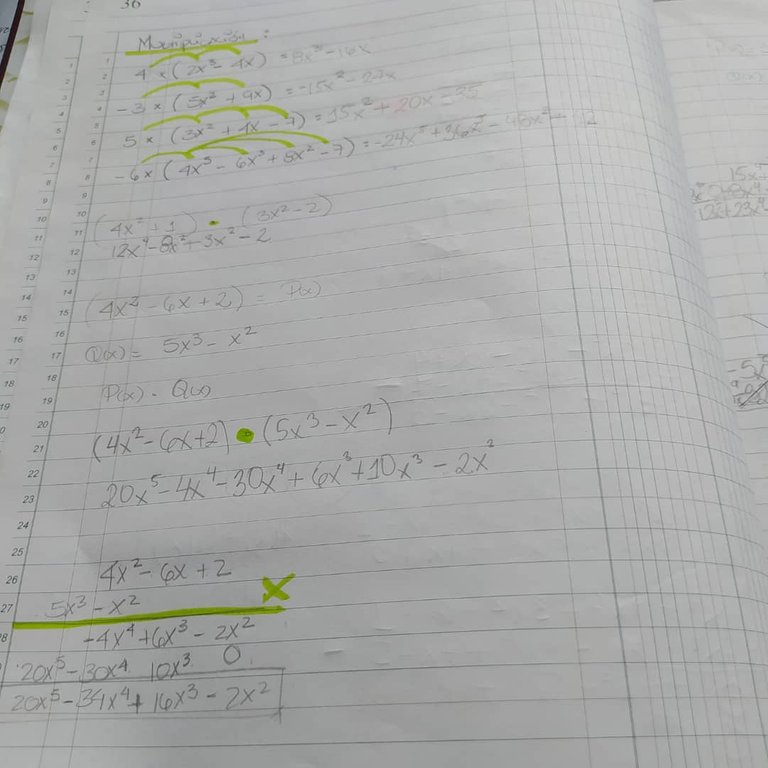 36
4 × (2x² - 4x) = 8x³ - 16x
-3 × (5x² + 9x) = -15x² - 27x
5 × (3x² + 4x - 7) = 15x² + 20x - 35
-6 × (4x⁵ - 6x³ + 8x² - 7) =
(4x² + 1) • (3x² - 2)
12x⁴ - 8x² + 3x² - 2
(4x² - 6x + 2) = P(x)
Q(x) = 5x³ - x²
P(x) · Q(x)
(4x² - 6x + 2) • (5x³ - x²)
20x⁵ - 4x⁴ - 30x⁴ + 6x³ + 10x³ - 2x²
4x² - 6x + 2
5x³ - x² ×
-4x⁴ + 6x³ - 2x²
20x⁵ - 30x⁴ 10x³ 0
20x⁵ - 34x⁴ + 16x³ - 2x²